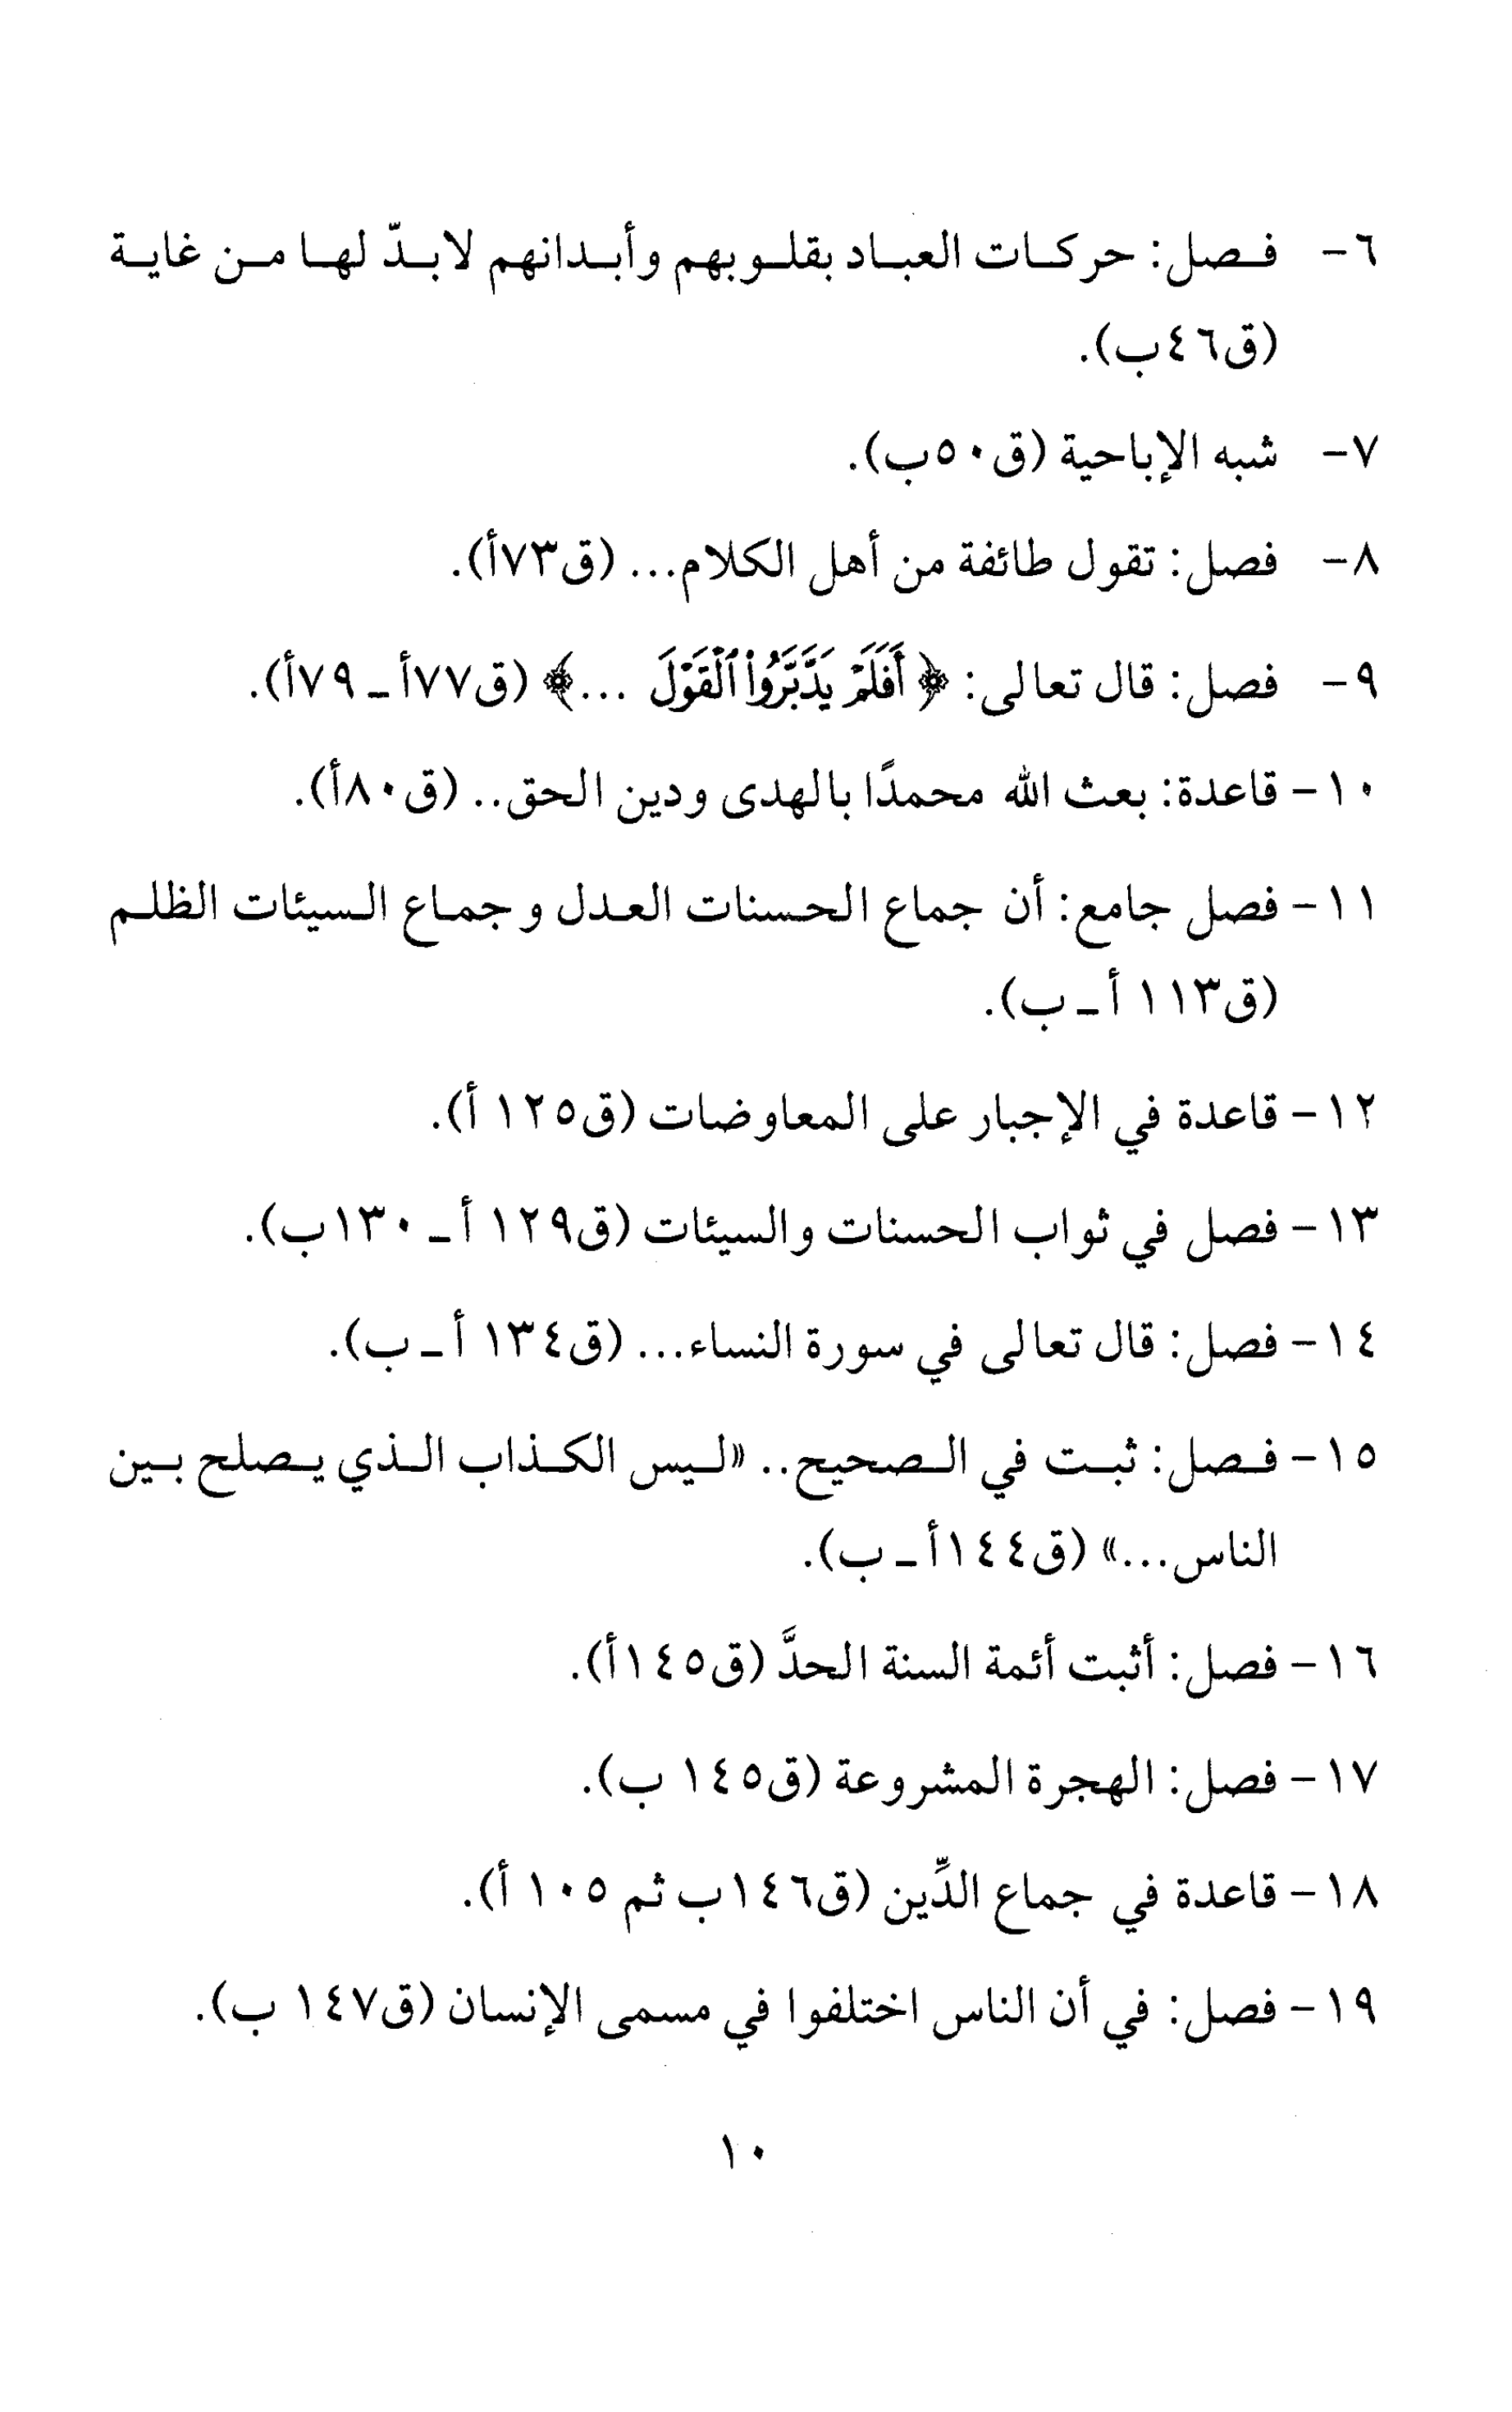 ٦- فصل: حركات العباد بقلوبهم وأبدانهم لابدّ لها من غاية
(ق٤٦ب).
٧- شبه الإباحية (ق٥٠ب).
٨- فصل: تقول طائفة من أهل الكلام... (ق٧٣أ).
٩- فصل: قال تعالى: ﴿أَفَلَمْ يَدَّبَّرُوا۟ ٱلْقَوْلَ ...﴾ (ق٧٧أ ـ ٧٩أ).
١٠- قاعدة: بعث الله محمدًا بالهدى ودين الحق.. (ق٨٠أ).
١١- فصل جامع: أن جماع الحسنات العدل وجماع السيئات الظلم
(ق١١٣ أ ـ ب).
١٢- قاعدة في الإجبار على المعاوضات (ق١٢٥ أ).
١٣- فصل في ثواب الحسنات والسيئات (ق١٢٩ أ ـ ١٣٠ب).
١٤- فصل: قال تعالى في سورة النساء... (ق١٣٤ أ ـ ب).
١٥- فصل: ثبت في الصحيح.. «ليس الكذاب الذي يصلح بين
الناس...» (ق١٤٤أ ـ ب).
١٦- فصل: أثبت أئمة السنة الحدَّ (ق١٤٥أ).
١٧- فصل: الهجرة المشروعة (ق١٤٥ ب).
١٨- قاعدة في جماع الدِّين (ق١٤٦ب ثم ١٠٥ أ).
١٩- فصل: في أن الناس اختلفوا في مسمى الإنسان (ق١٤٧ ب).
١٠